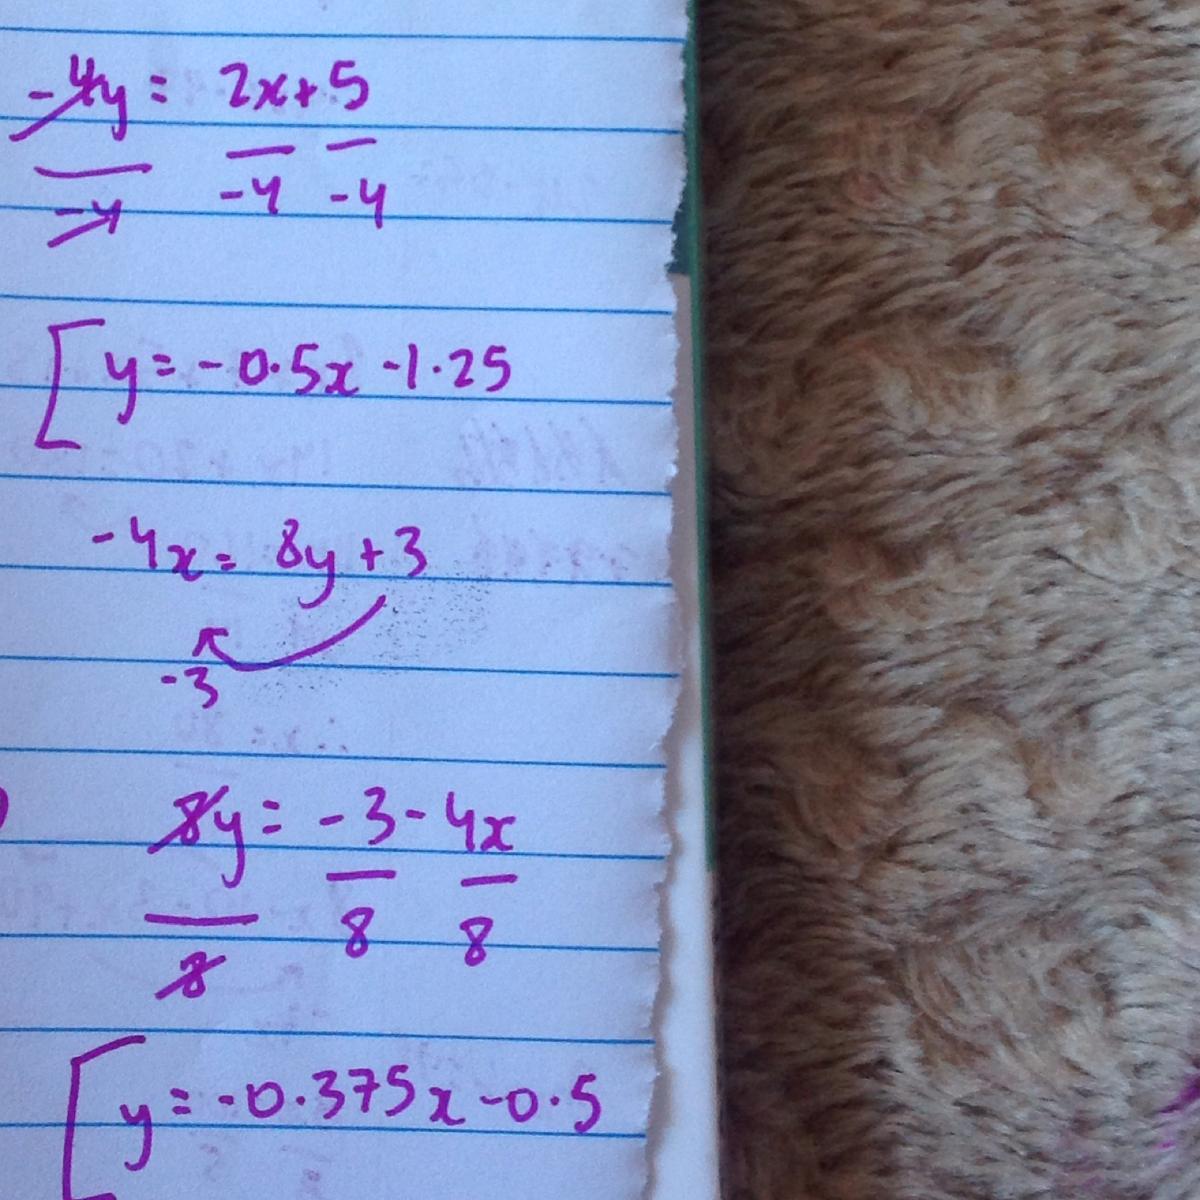 -4y = 2x + 5
-4 -4 -4
y = -0.5x -1.25
-4x = 8y + 3
-3
8y = -3 - 4x
8 8 8
y = -0.375x -0.5